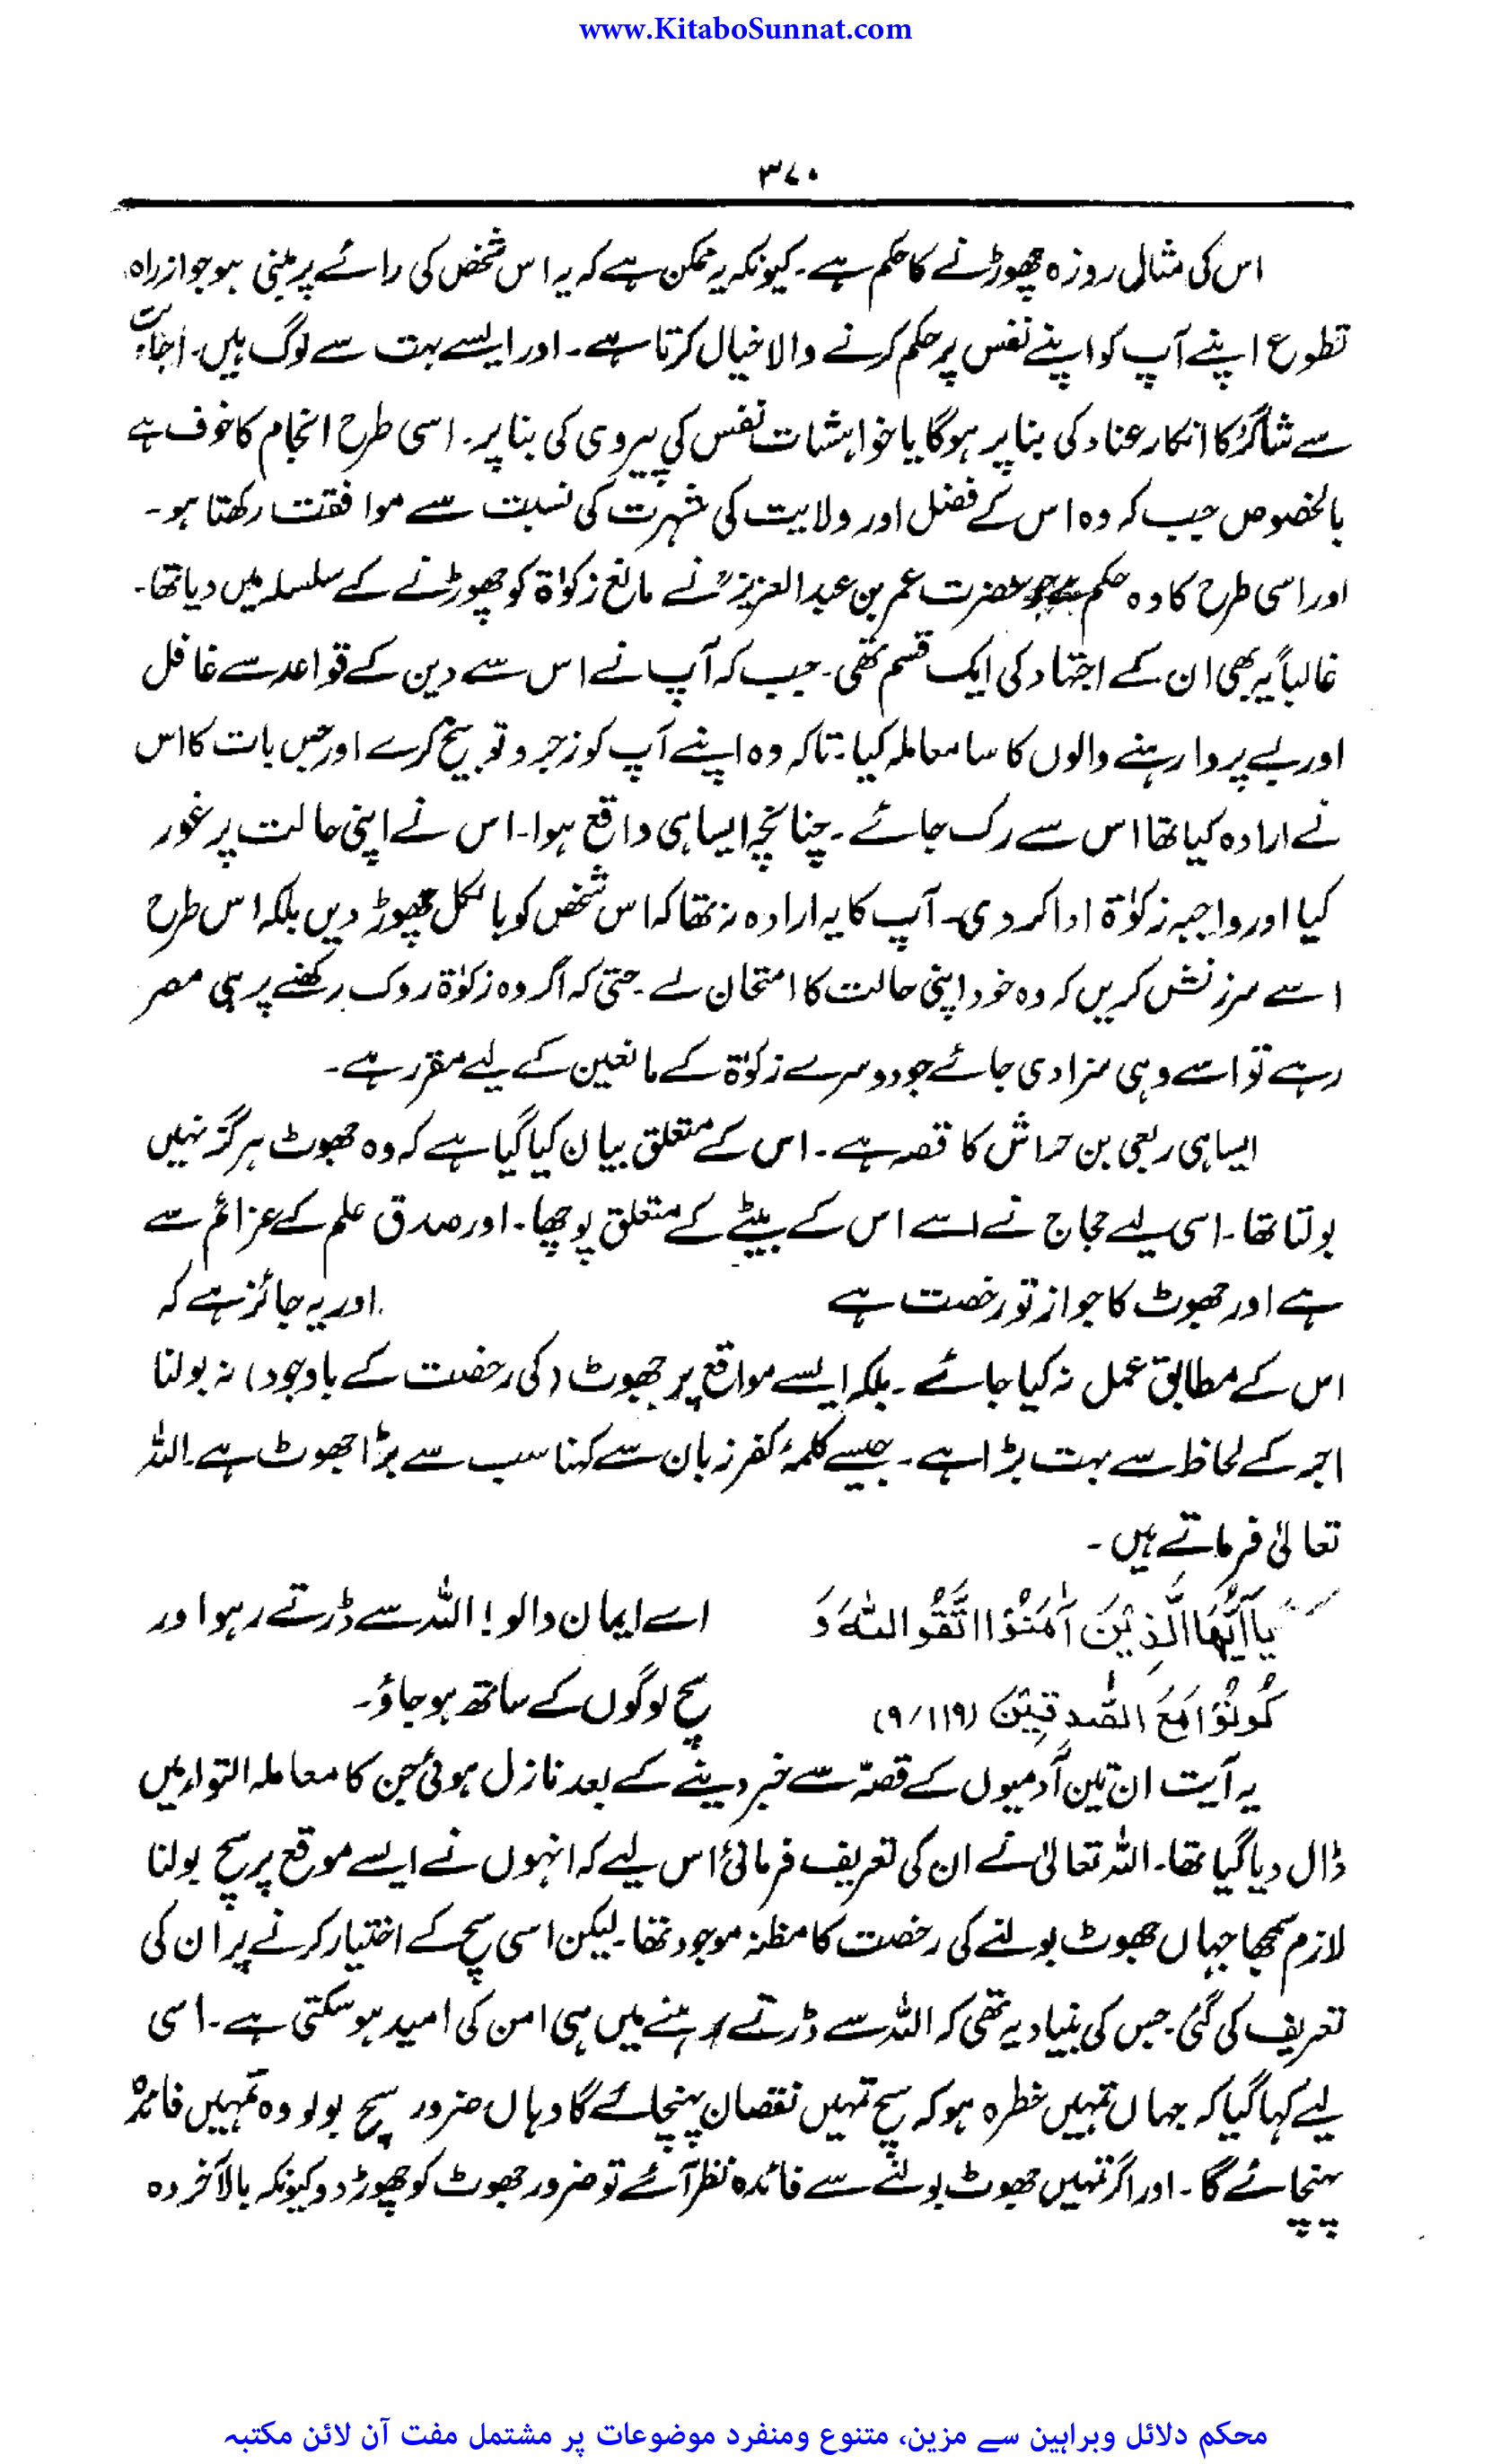 www.KitaboSunnat.com
۳۷۰
اس کی مثالی روزہ چھوڑنے کا حکم ہے۔ کیونکہ یہ ممکن ہے کہ یہ اس شخص کی رائے پر مبنی ہو جو ازراہ
تطوع اپنے آپ کو اپنے نفس پر حکم کرنے والا خیال کرتا ہے۔ اور ایسے بہت سے لوگ ہیں۔ اجابت
سے شاگرد کا انکار عناد کی بنا پر ہوگا یا خواہشات نفس کی پیروی کی بنا پر۔ اسی طرح انجام کا خوف ہے
بالخصوص جب کہ وہ اس کے فضل اور ولایت کی شہرت کی نسبت سے موافقت رکھتا ہو۔
اور اسی طرح کا وہ حکم ہے جو حضرت عمر بن عبدالعزیزؒ نے مانع زکوٰۃ کو چھوڑنے کے سلسلہ میں دیا تھا۔
غالباً یہ بھی ان کے اجتہاد کی ایک قسم تھی۔ جب کہ آپ نے اس سے دین کے قواعد سے غافل
اور بے پروا رہنے والوں کا سا معاملہ کیا: تاکہ وہ اپنے آپ کو زجر و توبیخ کرے اور جس بات کا اس
نے ارادہ کیا تھا اس سے رک جائے۔ چنانچہ ایسا ہی واقع ہوا۔ اس نے اپنی حالت پر غور
کیا اور واجبہ زکوٰۃ ادا کر دی۔ آپ کا یہ ارادہ نہ تھا کہ اس شخص کو بالکل چھوڑ دیں بلکہ اس طرح
اسے سرزنش کریں کہ وہ خود اپنی حالت کا امتحان لے۔ حتی کہ اگر وہ زکوٰۃ روک رکھنے پر ہی مصر
رہے تو اسے وہی سزا دی جائے جو دوسرے زکوٰۃ کے مانعین کے لیے مقرر ہے۔
ایسا ہی ربعی بن حراش کا قصہ ہے۔ اس کے متعلق بیان کیا گیا ہے کہ وہ جھوٹ ہرگز نہیں
بولتا تھا۔ اسی لیے حجاج نے اسے اس کے بیٹے کے متعلق پوچھا۔ اور صدق علم کے عزائم سے
ہے اور جھوٹ کا جواز تو رخصت ہے اور یہ جائز ہے کہ
اس کے مطابق عمل نہ کیا جائے۔ بلکہ ایسے مواقع پر جھوٹ (کی رخصت کے باوجود) نہ بولنا
اجر کے لحاظ سے بہت بڑا ہے۔ جیسے کلمۂ کفر زبان سے کہنا سب سے بڑا جھوٹ ہے۔ اللہ
تعالیٰ فرماتے ہیں۔
يَاأَيُّهَا الَّذِيْنَ آمَنُوْا اتَّقُو اللهَ وَ اے ایمان والو! اللہ سے ڈرتے رہو اور
كُوْنُوْا مَعَ الصّٰدِقِيْنَ (۹/۱۱۹) سچے لوگوں کے ساتھ ہو جاؤ۔
یہ آیت ان تین آدمیوں کے قصّہ سے خبر دینے کے بعد نازل ہوئی جن کا معاملہ التواء میں
ڈال دیا گیا تھا۔ اللہ تعالیٰ نے ان کی تعریف فرمائی اس لیے کہ انہوں نے ایسے موقع پر سچ بولنا
لازم سمجھا جہاں جھوٹ بولنے کی رخصت کا مظنہ موجود تھا۔ لیکن اسی سچ کے اختیار کرنے پر ان کی
تعریف کی گئی۔ جس کی بنیاد یہ تھی کہ اللہ سے ڈرتے رہنے میں ہی امن کی امید ہو سکتی ہے۔ اسی
لیے کہا گیا کہ جہاں تمہیں خطرہ ہو کہ سچ تمہیں نقصان پہنچائے گا وہاں ضرور سچ بولو وہ تمہیں فائدہ
پہنچائے گا۔ اور اگر تمہیں جھوٹ بولنے سے فائدہ نظر آئے تو ضرور جھوٹ کو چھوڑ دو کیونکہ بالآخر وہ
محکم دلائل وبراہین سے مزین، متنوع ومنفرد موضوعات پر مشتمل مفت آن لائن مکتبہ